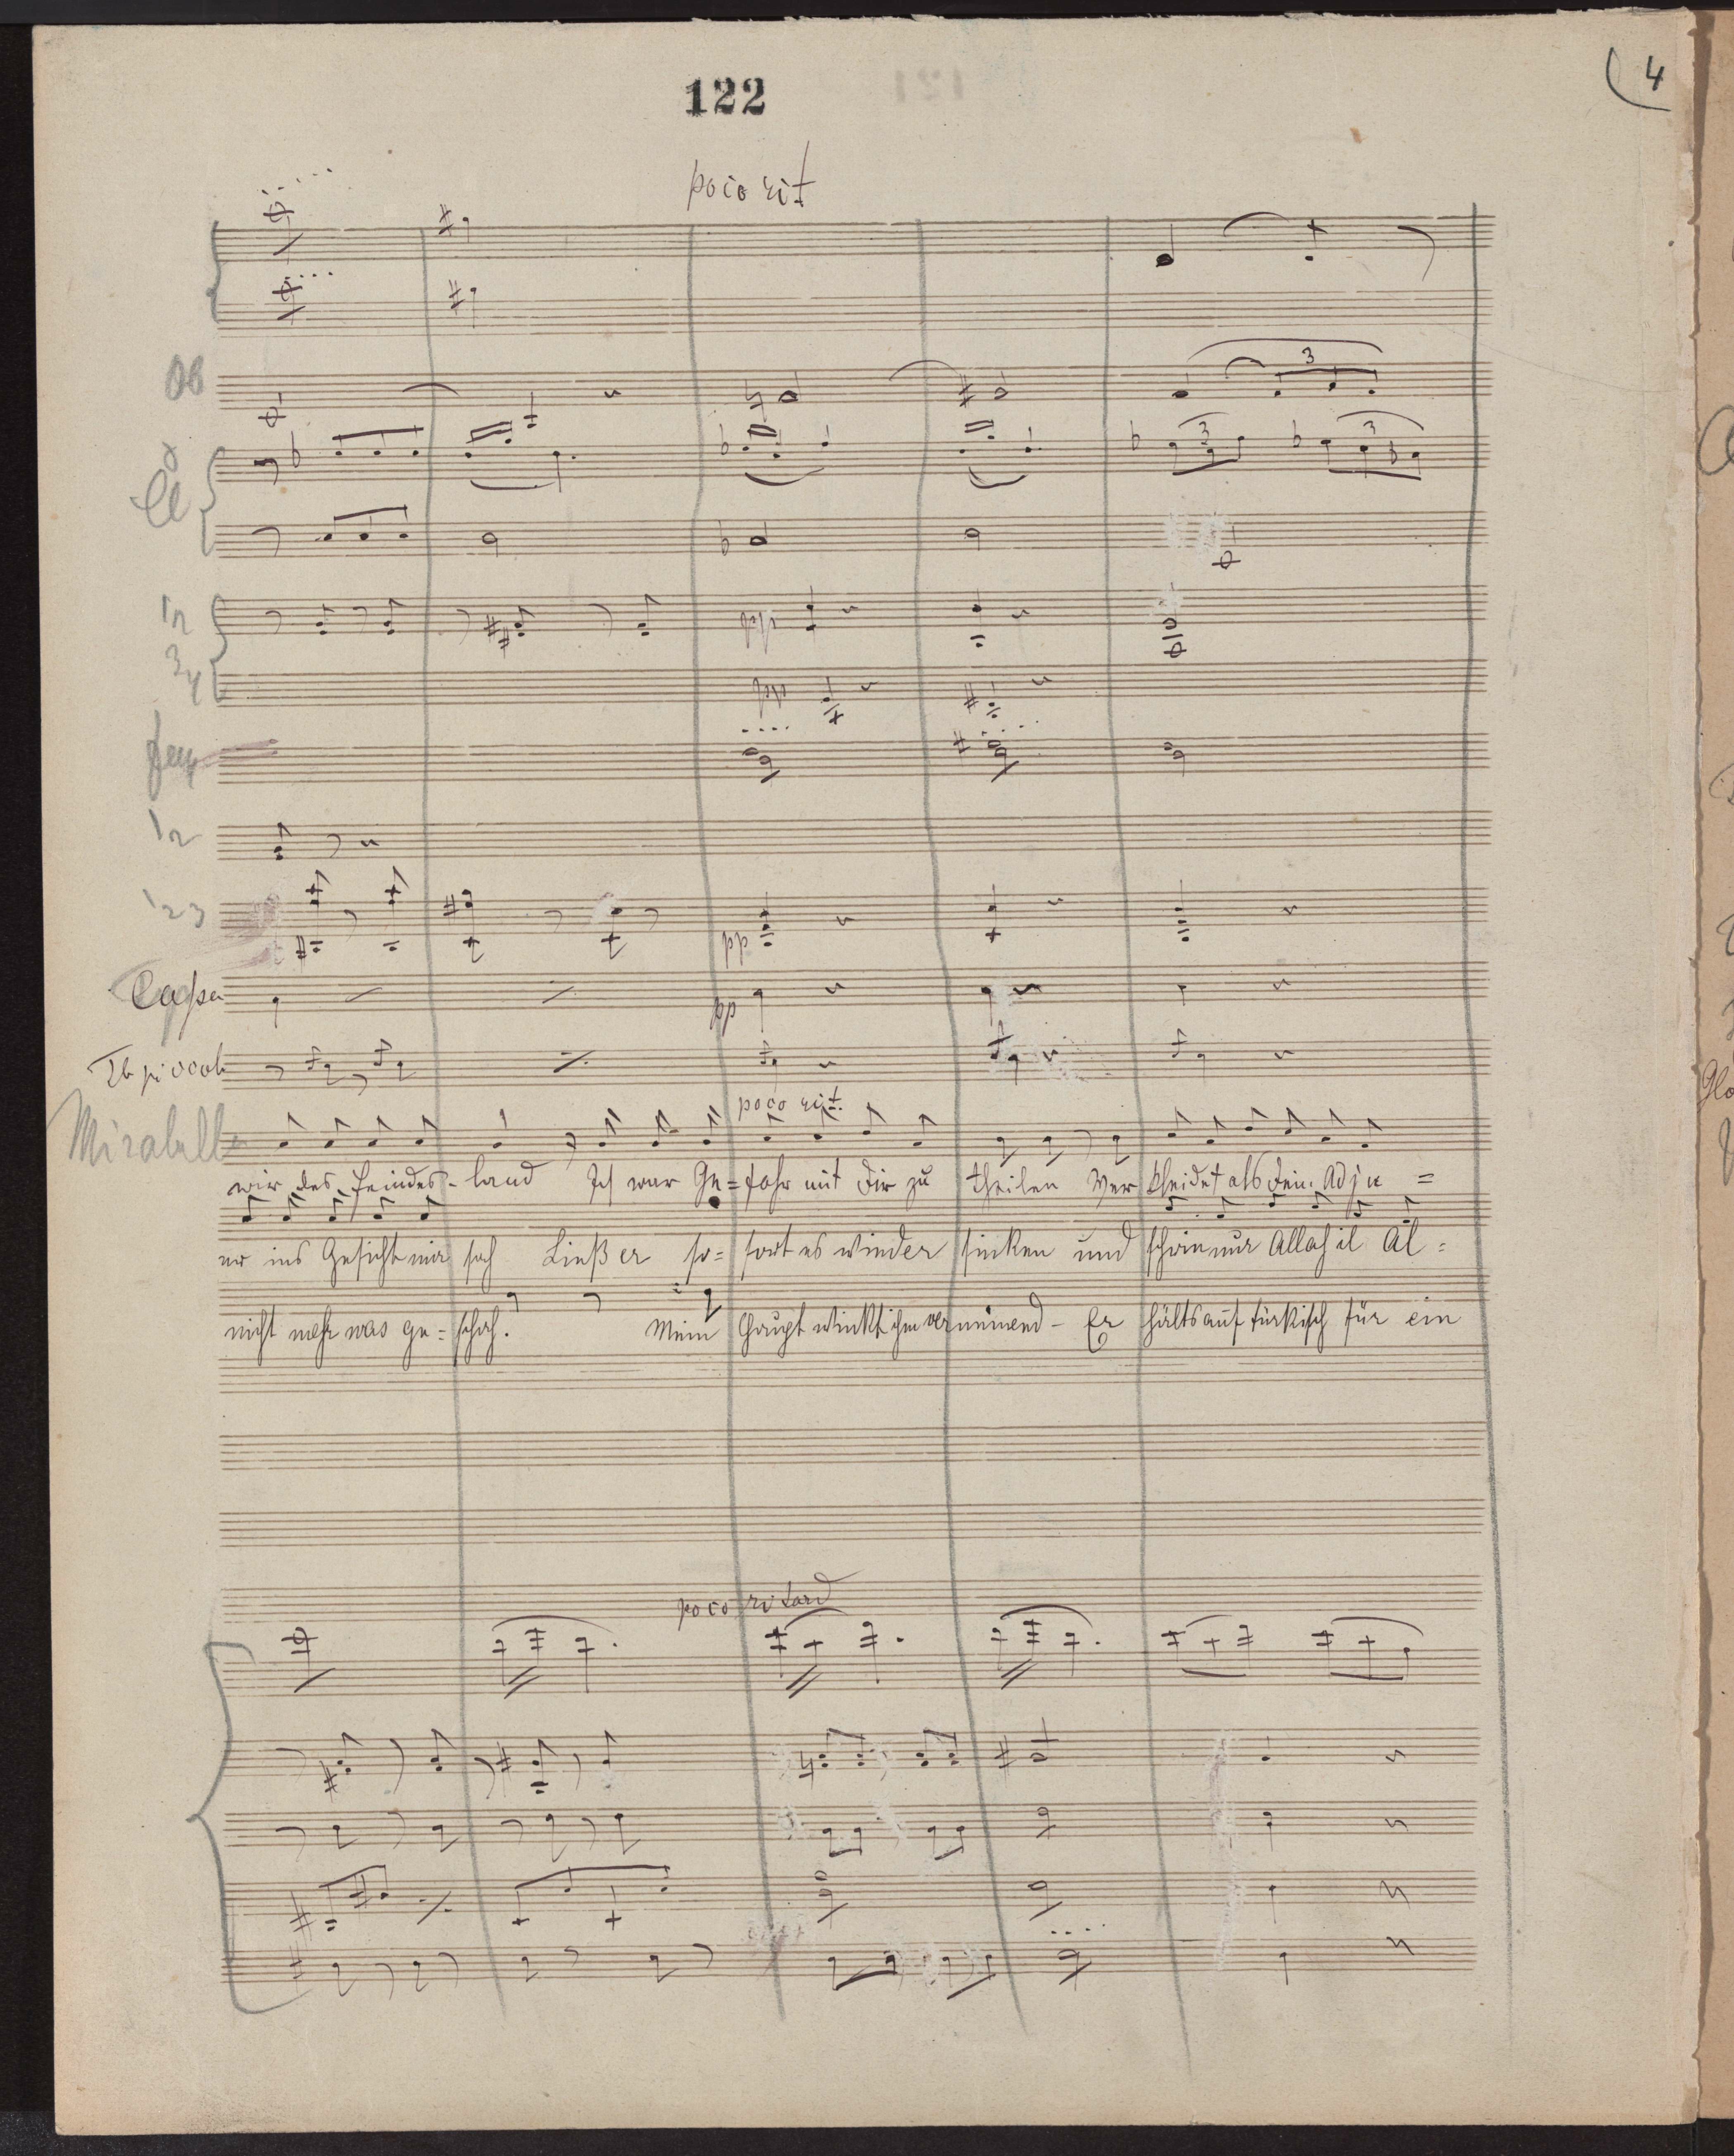 4
122
poco rit
Ob
Cl
1 2
3 4
1 2
1 2 3
pp
Cassa
pp
Tb piccolo
poco rit.
Mirabella
wir des Feindes-land Ich war Ge=fahr mit Dir zu theilen Ver kleidet als Dein Adju =
er ins Gesicht mir sah Ließ er so= fort es wieder sinken und schrie nur Allah il Al=
nicht mehr was ge= schah. Mein Haupt winkt ihm verneinend- Er hälts auf türkisch für ein
poco ritard